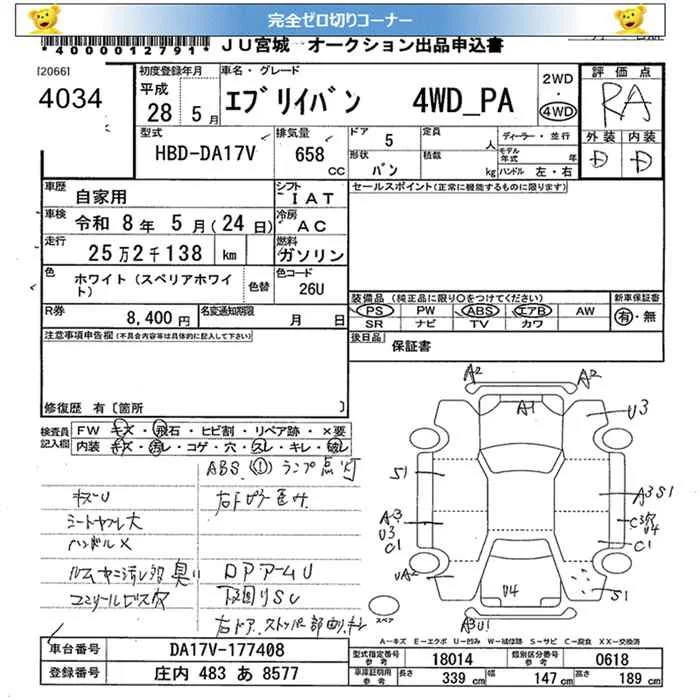 完全ゼロ切りコーナー
*4000012791* JU宮城 オークション出品申込書
[2066]
4034
初度登録年月 車名・グレード 2WD・4WD 評価点
平成 28 5月 エブリイバン 4WD_PA RA
型式 排気量 ドア 5 定員 人 ディーラー・並行 外装 内装
HBD-DA17V 658 CC 形状 バン 積載 kg モデル年式 年 ハンドル 左・右 D D
車歴 自家用 シフト IAT セールスポイント(正常に機能するものに限ります)
車検 令和 8年 5月(24日) 冷房 AC
走行 25万2千138 km 燃料 ガソリン
色 ホワイト(スペリアホワイト) 色替 色コード 26U
R券 8,400円 名変通知期限 月 日
装備品(純正品に限り○をつけてください) 新車保証書
PS PW ABS エアB AW 有・無
SR ナビ TV カワ
後日品 保証書
注意事項申告欄(不具合内容等は具体的に記入して下さい)
修復歴 有[箇所 ]
検査員記入欄 FW キズ・飛石・ヒビ割・リペア跡・×要
内装 キズ・汚れ・コゲ・穴・スレ・キレ・破レ
ABS (!) ランプ点灯
キズU
シートヤブレ大
ハンドル×
臭い
ドアアームU
下回りSU
A2 A2
A1
U3
S1
A3 S1
A3
U3
C1
C3穴
U4
C1
UA2
U4
S1
A3U1
スペア
A-キズ E-エクボ U-凹み W-補修跡 S-サビ C-腐食 XX-交換済
車台番号 DA17V-177408 型式指定番号 参考 18014 類別区分番号 参考 0618
登録番号 庄内 483 あ 8577 車庫証明用 参考 長さ 339 cm 幅 147 cm 高さ 189 cm